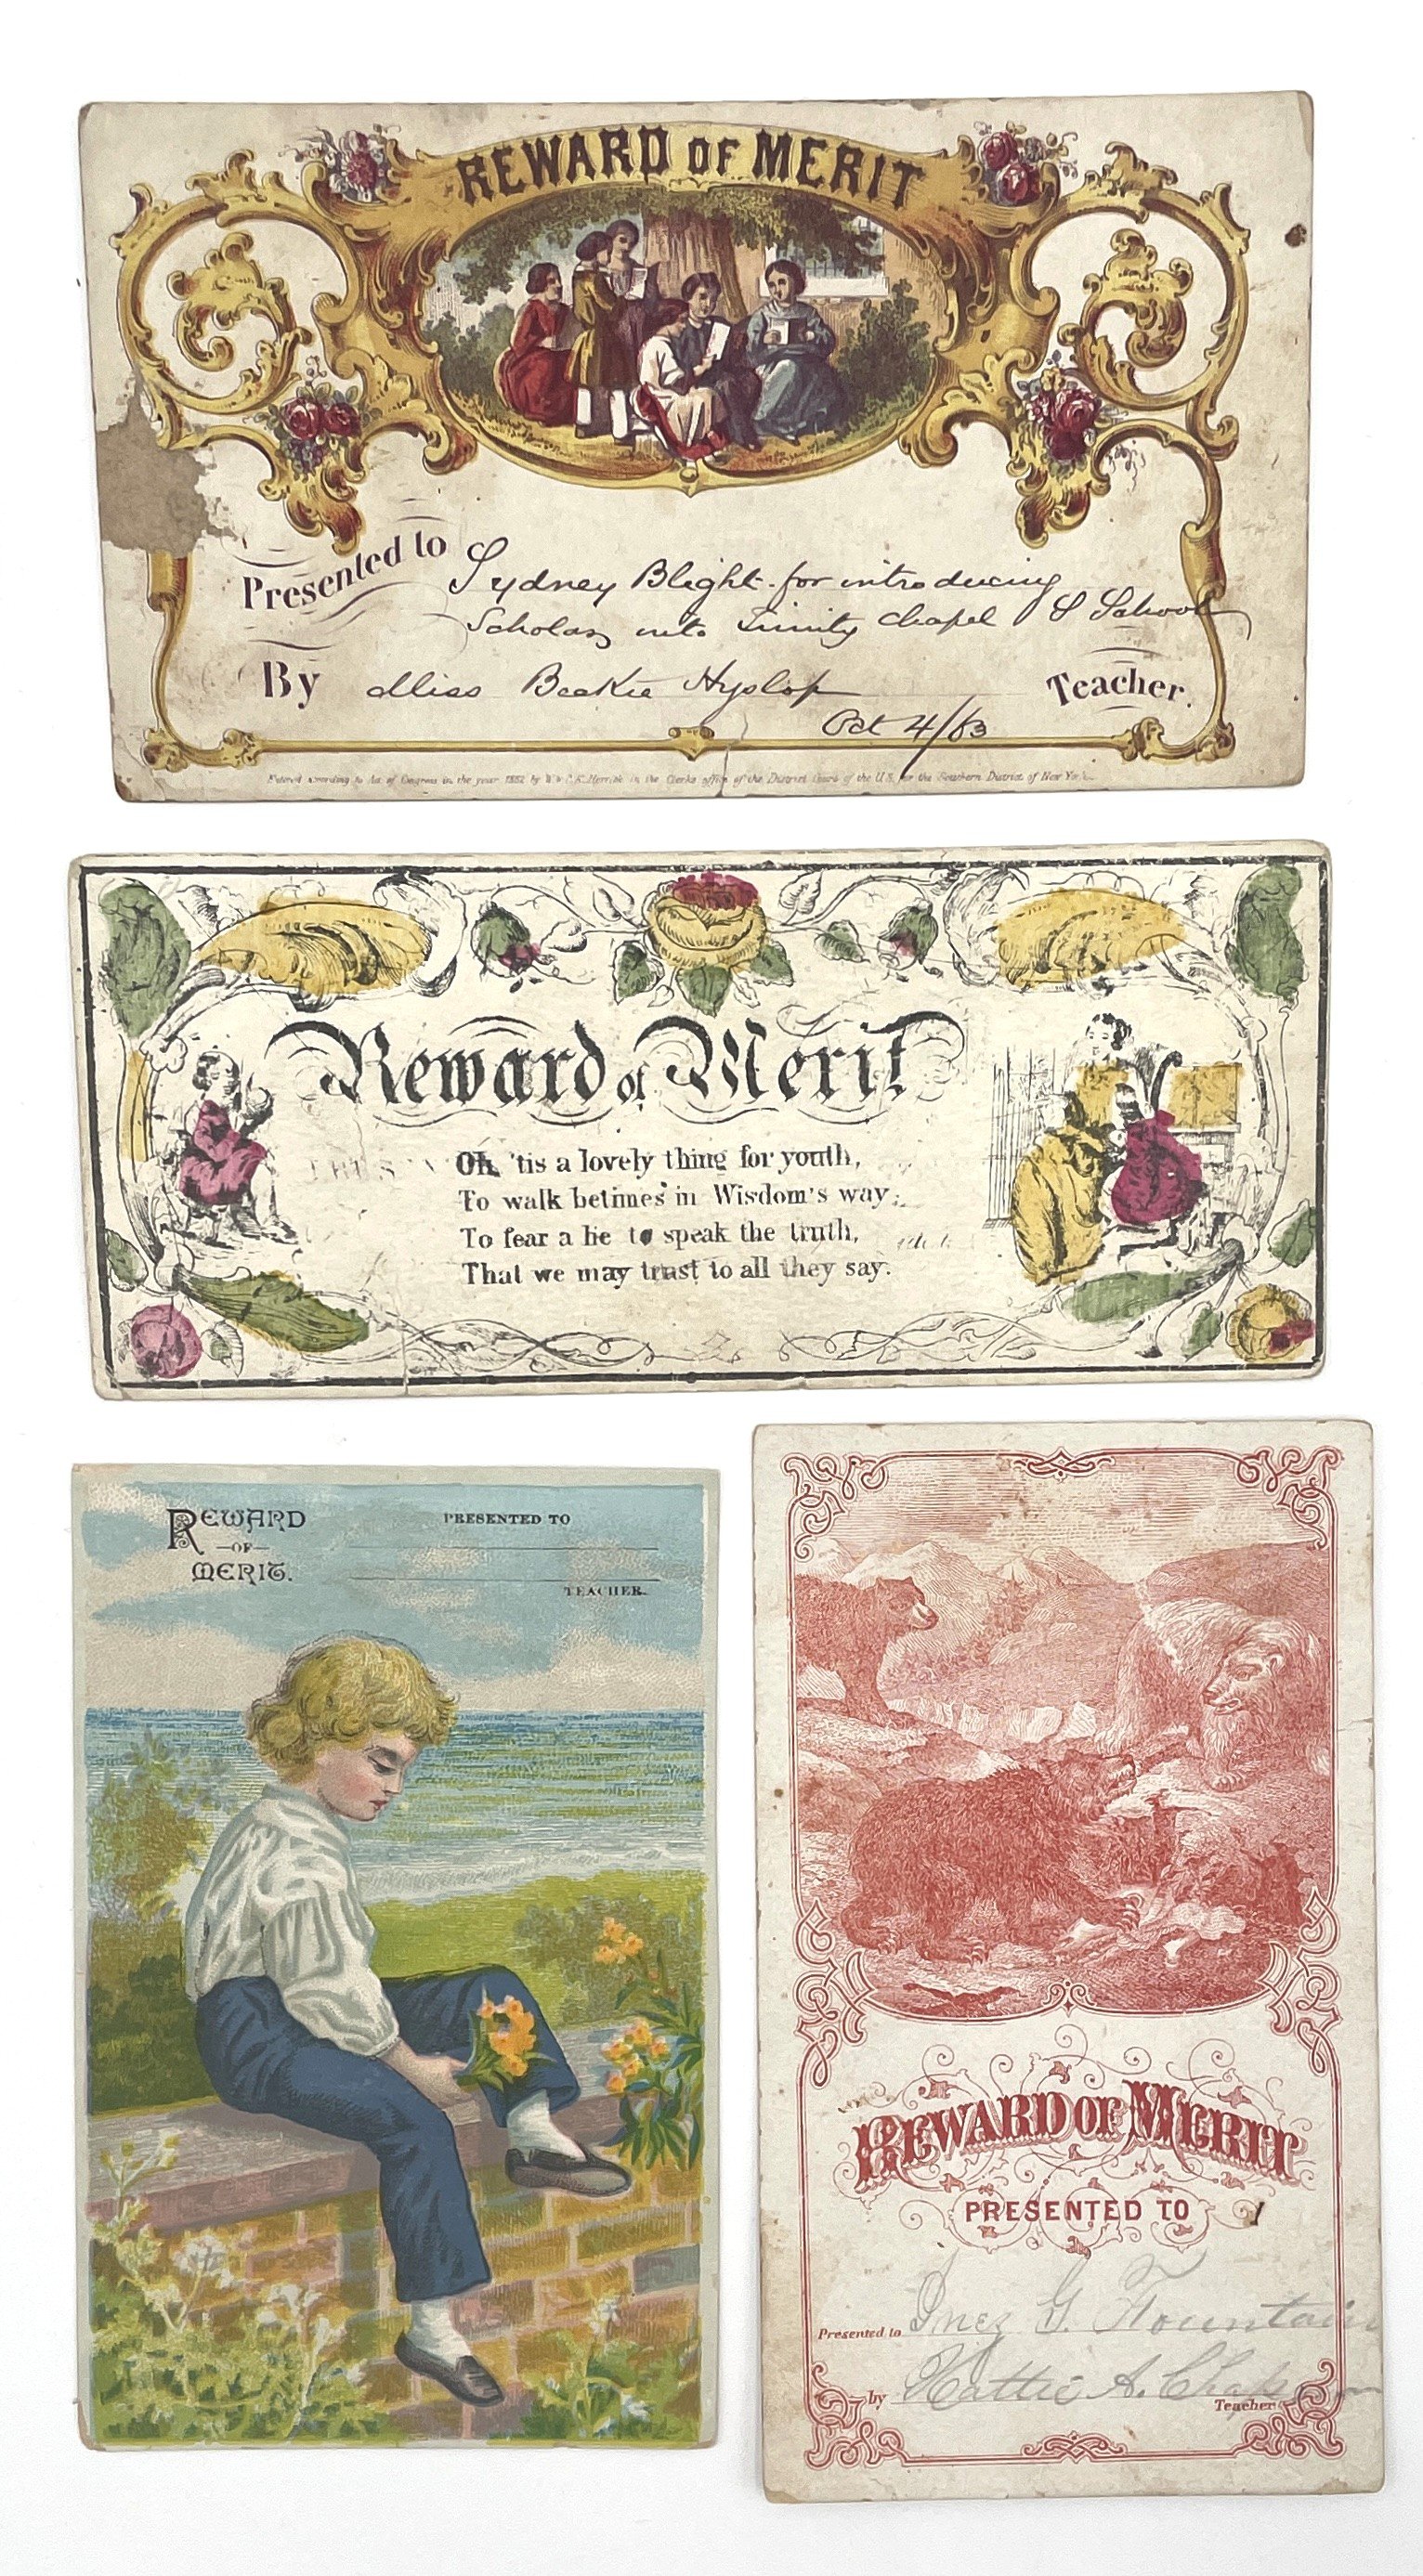 REWARD OF MERIT
Presented to Sydney Blight for introducing
Scholars into Trinity Chapel S School
By Miss Beekie Hyslop Teacher.
Oct 4/63
Entered according to Act of Congress in the year 1862 by W & C.K. Herrick in the Clerks office of the District Court of the U.S. for the Southern District of New York
Reward of Merit
Oh, 'tis a lovely thing for youth,
To walk betimes in Wisdom's way;
To fear a lie to speak the truth,
That we may trust to all they say.
REWARD
—OF—
MERIT.
PRESENTED TO
TEACHER.
REWARD OF MERIT
PRESENTED TO
Presented to Inez G. Fountain
by Hattie A. Chapman
Teacher